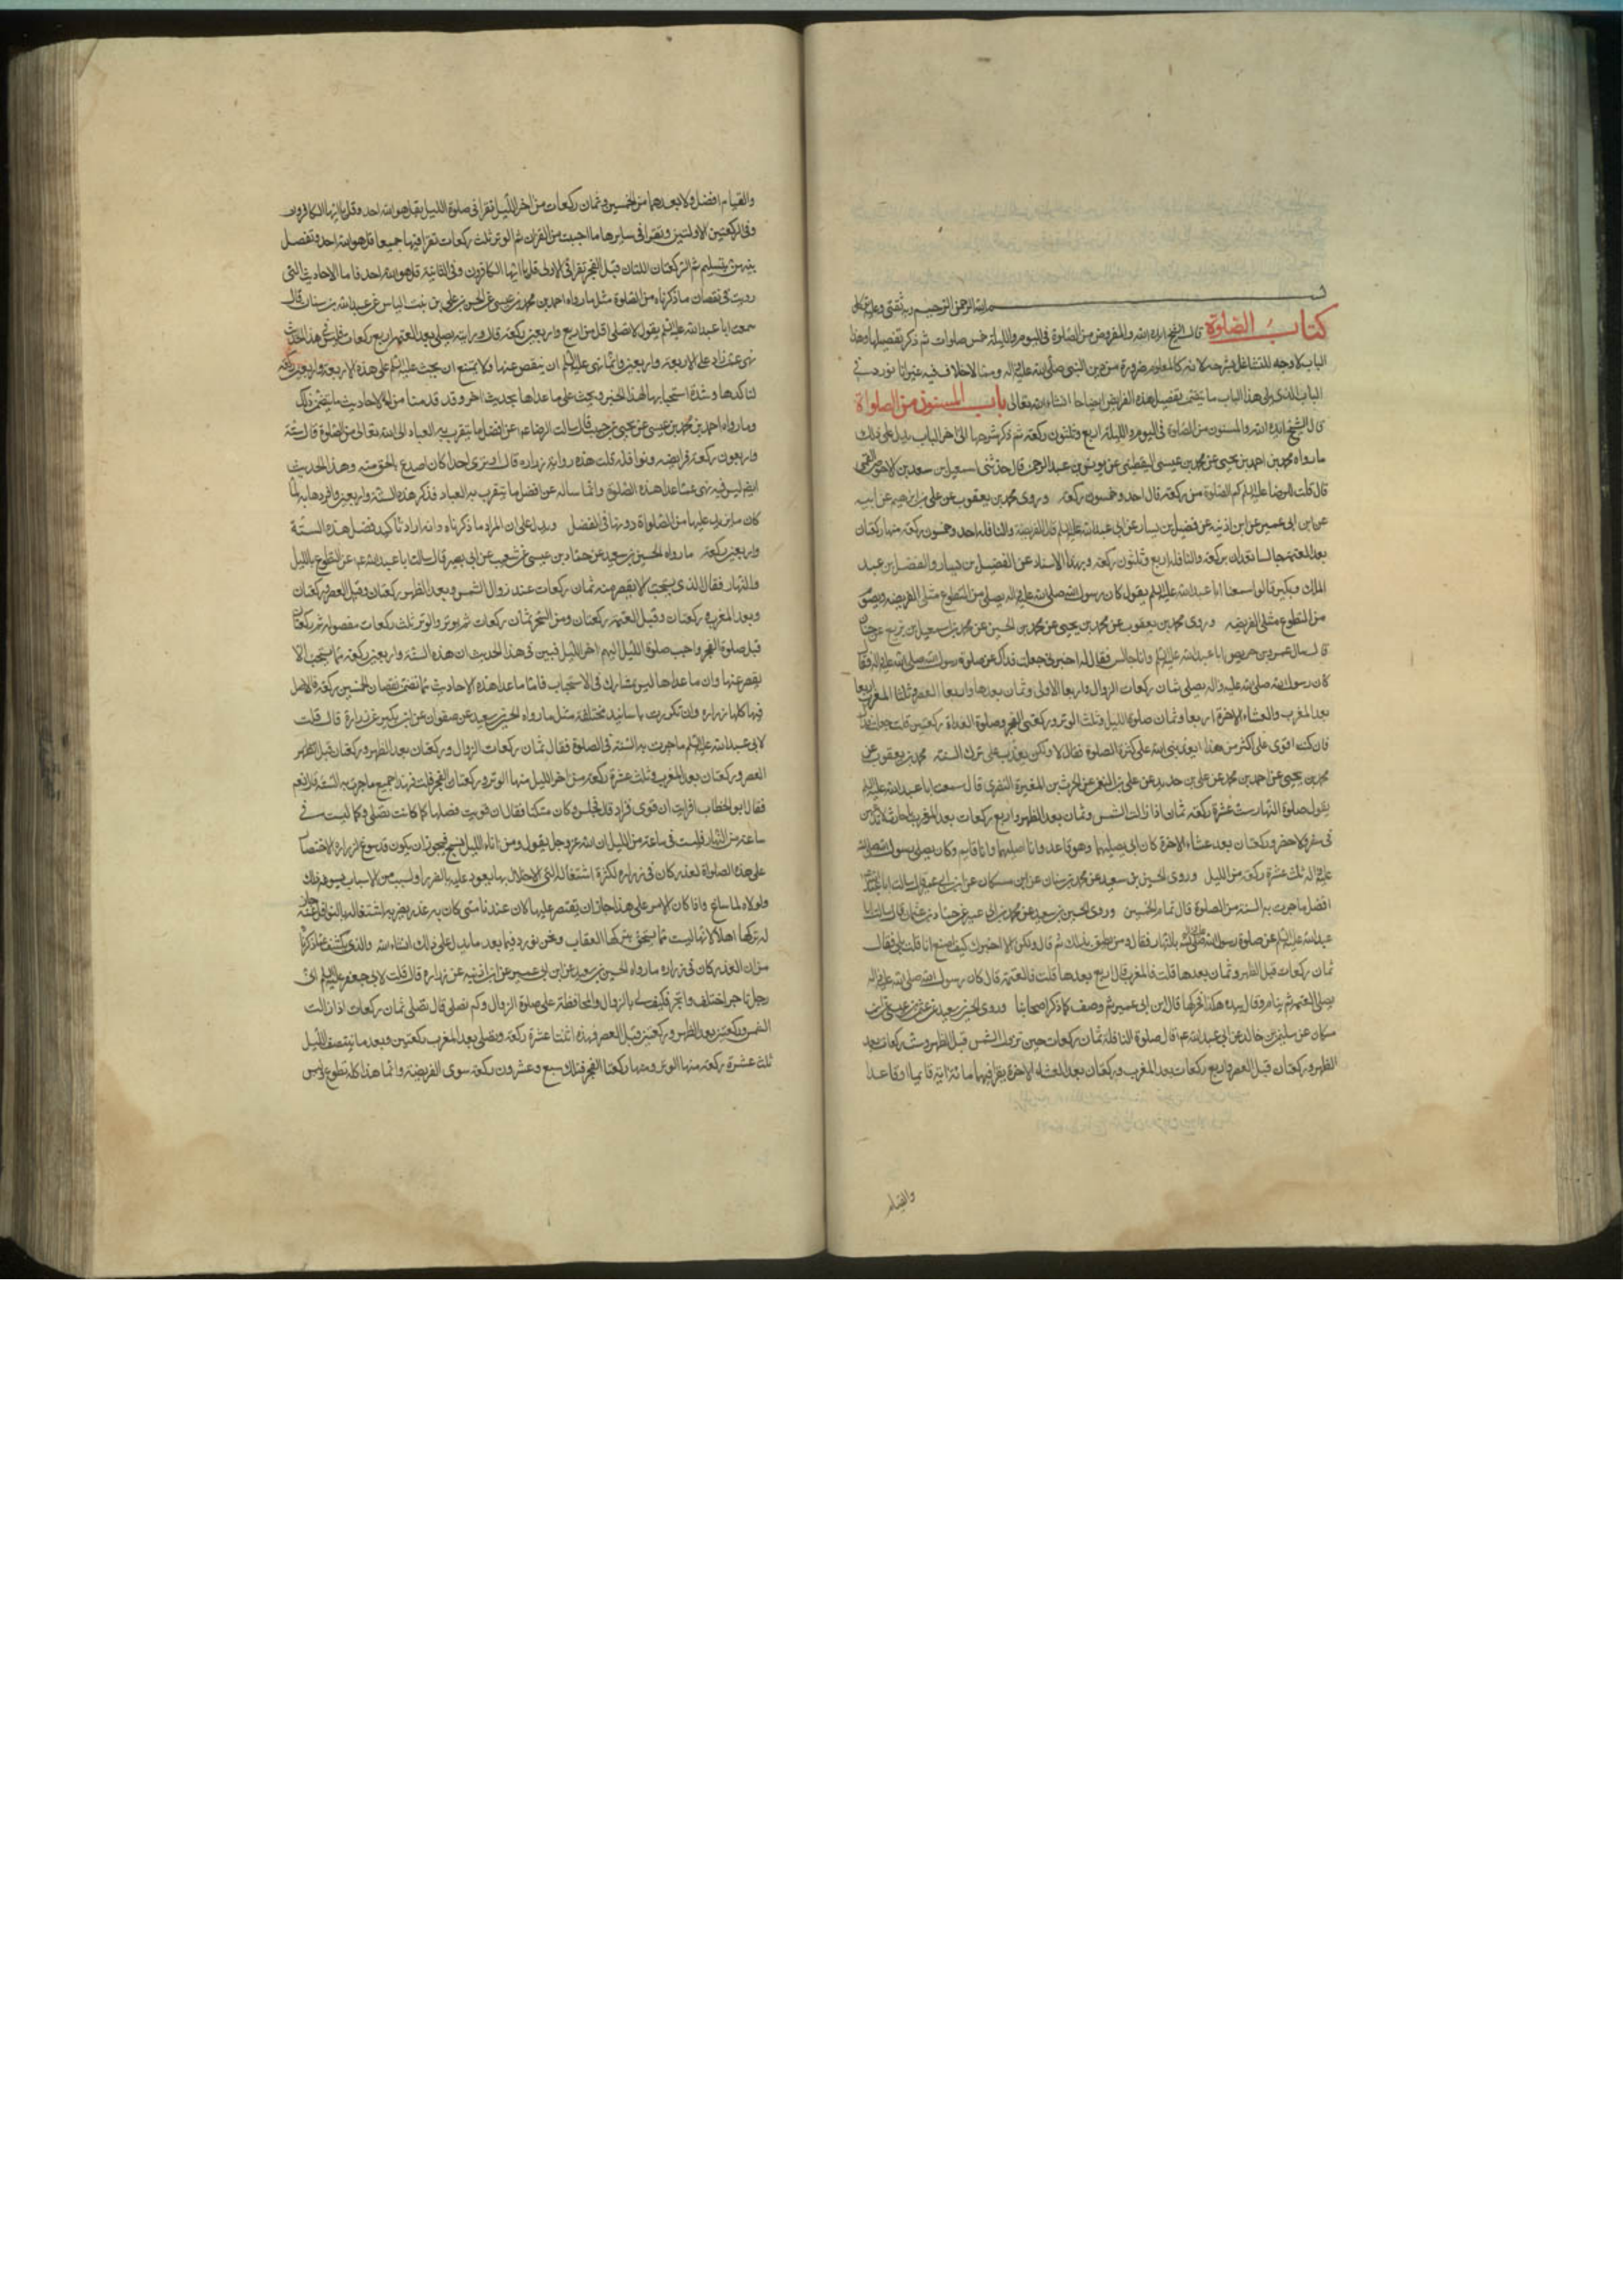 بسم الله الرحمن الرحيم وبه ثقتي
كتاب الصلوة قال الشيخ ايده الله والمفروض من الصلوة في اليوم والليلة خمس صلوات ثم ذكر تفصيلها وهذا
الباب لا وجه للتشاغل بشرحه لانه كالمعلوم ضرورة من دين النبي صلى الله عليه واله ومما لا خلاف فيه غير انا نورد في
الباب الذي يلي هذا الباب ما يتضمن تفصيل هذه الفرايض ايضاحا انشاء الله تعالى باب المسنون من الصلواة
قال الشيخ ايده الله والمسنون من الصلوة في اليوم والليلة اربع وثلثون ركعة ثم ذكر شرحها الى اخر الباب يدل على ذلك
ما رواه محمد بن احمد بن يحيى عن محمد بن عيسى اليقطيني عن يونس بن عبد الرحمن قال حدثني اسمعيل بن سعد بن الاحوص القمي
قال قلت للرضا عليه السلم كم الصلوة من ركعة قال احد وخمسون ركعة وروى محمد بن يعقوب عن علي بن ابرهيم عن ابيه
عن ابن ابي عمير عن ابن اذينه عن فضيل بن يسار عن ابي عبد الله عليه السلم قال الفريضة والنافلة احد وخمسون ركعة منها ركعتان
بعد العتمة جالسا تعدان بركعة والنافلة اربع وثلثون ركعة وبهذا الاسناد عن الفضيل بن يسار والفضل بن عبد
الملك وبكير قالوا سمعنا ابا عبد الله عليه السلم يقول كان رسول الله صلى الله عليه واله يصلي من التطوع مثلي الفريضه ويصوم
من التطوع مثلي الفريضه وروى محمد بن يعقوب عن محمد بن يحيى عن محمد بن الحسين عن محمد بن اسمعيل بن بزيع عن حنان
قال سال عمرو بن حريث ابا عبد الله عليه السلم وانا جالس فقال له اخبرني جعلت فداك عن صلوة رسول الله صلى الله عليه واله فقال
كان رسول الله صلى الله عليه واله يصلي ثمان ركعات الزوال واربعا الاولى وثمان بعدها واربعا العصر وثلثا المغرب واربعا
بعد المغرب والعشاء الاخرة اربعا وثمان صلوة الليل وثلث الوتر وركعتي الفجر وصلوة الغداة ركعتين قلت جعلت فداك
فان كنت اقوى على اكثر من هذا ايعذبني الله على كثرة الصلوة فقال لا ولكن يعذب على ترك السنة محمد بن يعقوب عن
محمد بن يحيى عن احمد بن محمد عن علي بن حديد عن علي بن النعمن عن الحرث بن المغيرة النصري قال سمعت ابا عبد الله عليه السلم
يقول صلوة النهار ست عشرة ركعة ثمان اذا زالت الشمس وثمان بعد الظهر واربع ركعات بعد المغرب يا حارث لا تدعهن
في سفر ولا حضر وركعتان بعد عشاء الاخرة كان ابي يصليهما وهو قاعد وانا اصليهما وانا قايم وكان يصلي رسول الله صلى الله
عليه واله ثلث عشرة ركعة من الليل وروى الحسين بن سعيد عن محمد بن سنان عن ابن مسكان عن ابن ابي عمير قال سالت ابا عبد الله عن
افضل ما جرت به السنة من الصلوة قال تمام الخمسين وروى الحسين بن سعيد عن محمد بن ابي عمير عن حماد بن عثمان قال سالت ابا
عبد الله عليه السلم عن صلوة رسول الله صلى الله عليه واله بالنهار فقال ومن يطيق ذلك ثم قال ولكن الا اخبرك كيف اصنع انا قلت بلى فقال
ثمان ركعات قبل الظهر وثمان بعدها قلت فالمغرب قال اربع بعدها قلت فالعتمة قال كان رسول الله صلى الله عليه واله
يصلي العتمة ثم ينام وقال بيده هكذا فحركها قال ابن ابي عمير ثم وصف كما ذكر اصحابنا وروى الحسين بن سعيد عن عثمن بن عيسى عن ابن
مسكان عن سليمن بن خالد عن ابي عبد الله ع قال صلوة النافلة ثمان ركعات حين تزول الشمس قبل الظهر وست ركعات بعد
الظهر وركعتان قبل العصر واربع ركعات بعد المغرب وركعتان بعد العشاء الاخرة يقرا فيهما مائة اية قايما او قاعدا
والقيام
والقيام افضل ولا تعدهما من الخمسين وثمان ركعات من اخر الليل تقرا في صلوة الليل بقل هو الله احد وقل يا ايها الكافرون
في الركعتين الاولتين وتقرا في سايرها ما احببت من القران ثم الوتر ثلث ركعات تقرا فيها جميعا قل هو الله احد وتفصل
بينهن بتسليم ثم الركعتان اللتان قبل الفجر تقرا في الاولى قل يا ايها الكافرون وفي الثانية قل هو الله احد فاما الاحاديث التي
رويت في نقصان ما ذكرناه من الصلوة مثل ما رواه احمد بن محمد بن عيسى عن الحسن بن علي بن بنت الياس عن عبد الله بن سنان قال
سمعت ابا عبد الله عليه السلم يقول لا تصلي اقل من اربع واربعين ركعة قال ورايته يصلي بعد العتمة اربع ركعات فليس في هذا الحديث
نهي عما زاد على الاربعة واربعين وانما نهى عليه السلم ان ينقص عنها ولا يمتنع ان يحث عليه السلم على هذه الاربعة واربعين ركعة
لتاكدها وشدة استحبابها بهذا الخبر ويحث على ما عداها بحديث اخر وقد قدمنا من الاحاديث ما يتضمن ذلك
وما رواه احمد بن محمد بن عيسى عن يحيى بن حبيب قال سالت الرضا ع عن افضل ما يتقرب به العباد الى الله تعالى من الصلوة قال ستة
واربعون ركعة فرايضه ونوافله قلت هذه رواية زراره قال اوترى احدا كان اصدع بالحق منه وهذا الحديث
ايضا ليس فيه نهي عما عدا هذه الصلوة وانما ساله عن افضل ما يتقرب به العباد فذكر هذه الستة واربعين وافردها به لما
كان ما يزيد عليها من الصلواة دونها في الفضل ويدل على ان المراد ما ذكرناه وانه اراد تاكيد فضل هذه الستة
واربعين ركعة ما رواه الحسين بن سعيد عن حماد بن عيسى عن شعيب عن ابي بصير قال سالت ابا عبد الله ع عن التطوع بالليل
والنهار فقال الذي يستحب الا يقصر منه ثمان ركعات عند زوال الشمس وبعد الظهر ركعتان وقبل العصر ركعتان
وبعد المغرب ركعتان وقبل العتمة ركعتان ومن السحر ثمان ركعات ثم يوتر والوتر ثلث ركعات مفصوله ثم ركعتان
قبل صلوة الفجر واحب صلوة الليل اليهم اخر الليل فبين في هذا الحديث ان هذه الستة واربعين ركعة مما يستحب الا
يقصر عنها وان ما عداها ليس بمشارك في الاستحباب فاما ما عدا هذه الاحاديث مما تضمن نقصان الخمسين ركعة فالاصل
فيها كلها زراره وان تكررت باسانيد مختلفة مثل ما رواه الحسين بن سعيد عن صفوان عن ابن بكير عن زرارة قال قلت
لابي عبد الله عليه السلم ما جرت به السنة في الصلوة فقال ثمان ركعات الزوال وركعتان بعد الظهر وركعتان قبل
العصر وركعتان بعد المغرب وثلث عشرة ركعة من اخر الليل منها الوتر وركعتا الفجر قلت فهذا جميع ما جرت به السنة قال نعم
فقال ابو الخطاب افرايت ان قوى فزاد قال فجلس وكان متكئا فقال ان قويت فصلها كما كانت تصلي وكما ليست في
ساعة من النهار فليست في ساعة من الليل ان الله عز وجل يقول ومن اناء الليل فسبح فيجوز ان يكون قد سوغ لزراره الاقتصار
على هذه الصلواة لعذر كان في زراره لكثرة اشتغاله التي الاخلال بها يعود عليه بالضرر او لسبب من الاسباب يسوغه ذلك
ولولاه لما ساغ واذا كان الامر على هذا جاز ان يقتصر عليها لان عندنا متى كان به عذر يضر به اشتغاله بالنوافل جاز
له تركها اصلا لانها ليست مما يستحق بتركها العقاب ونحن نورد فيما بعد ما يدل على ذلك انشاء الله والذي يكشف عما ذكرناه
من ان العذر كان في زراره ما رواه الحسين بن سعيد عن ابن ابي عمير عن ابن اذينه عن زراره قال قلت لابي جعفر عليه السلم اني
رجل تاجر اختلف واتجر فكيف لي بالزوال والمحافظة على صلوة الزوال وكم نصلي قال تصلي ثمان ركعات اذا زالت
الشمس وركعتين بعد الظهر وركعتين قبل العصر فهذه اثنتا عشرة ركعة وتصلي بعد المغرب ركعتين وبعد ما ينتصف الليل
ثلث عشرة ركعة منها الوتر ومنها ركعتا الفجر فتلك سبع وعشرون ركعة سوى الفريضة وانما هذا كله تطوع وليس